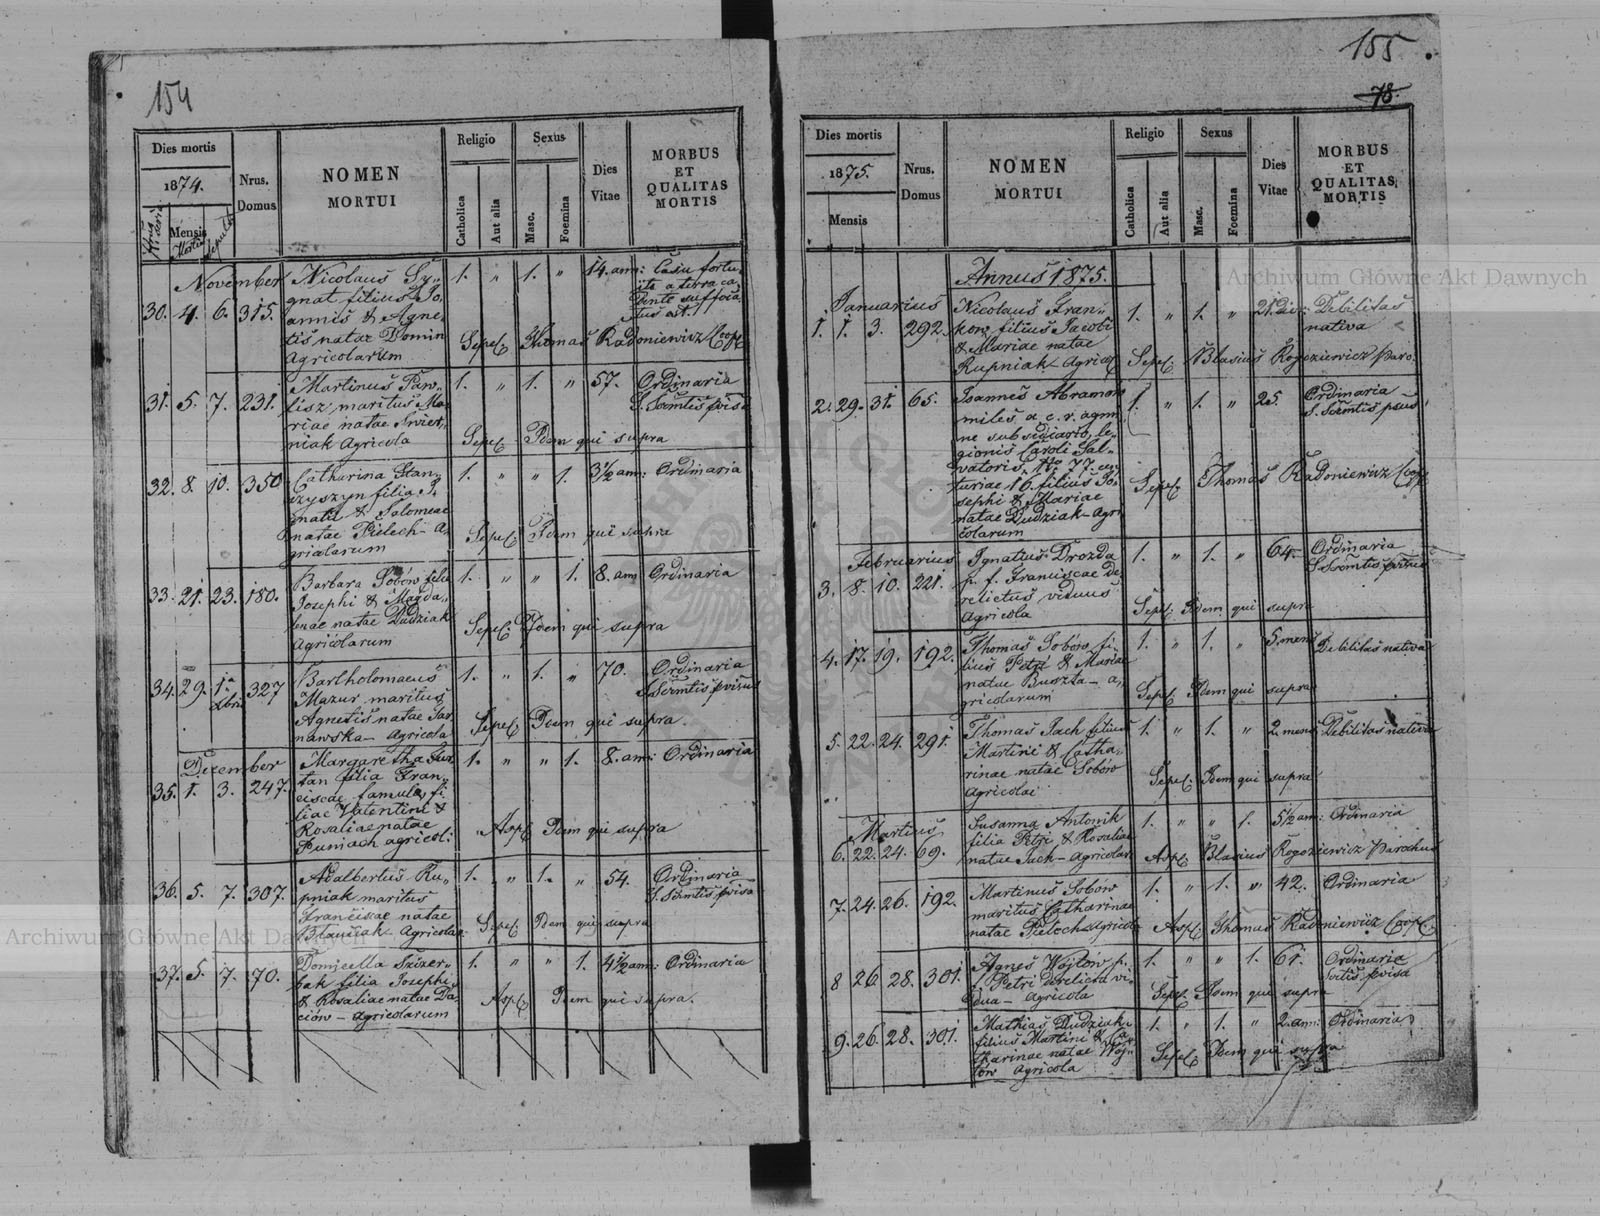 154
Dies mortis
1874.
Mensis
Nrus.
Domus
NOMEN
MORTUI
Religio
Catholica
Aut alia
Sexus
Masc.
Foemina
Dies
Vitae
MORBUS
ET
QUALITAS
MORTIS
November
30. 4. 6. 315.
Nicolaus Sy-
gnat filius Jo
annis & Agne
tis natae Domin
Agricolarum
1. " 1. " 14. ann: Casu fortu-
ite a terra ca
dente suffoca
tus est.
Sepel Thomas Radoniewicz Coop
31. 5. 7. 231.
Martinus Paw-
lisz maritus Ma
riae natae Swier-
niak Agricola
1. " 1. " 57. Ordinaria
S. Scrmtis pvisus
Sepel Idem qui supra
32. 8. 10. 350
Catharina Stan-
czyszyn filia I-
gnatii & Salomeae
natae Pielech - A-
gricolarum
1. " " 1. 3½ ann: Ordinaria
Sepel Idem qui supra
33. 21. 23. 180.
Barbara Sobów filia
Josephi & Magda-
lenae natae Dudziak
Agricolarum
1. " " 1. 8. ann Ordinaria
Sepel Idem qui supra
34. 29. 1a Xbris 327
Bartholomaeus
Mazur maritus
Agnetis natae Tar
nawska - Agricola
1. " 1. " 70. Ordinaria
S. Scrmtis pvisus
Sepel Idem qui supra.
December
35. 1. 3. 247.
Margaretha Sur-
tan filia Fran-
ciscae famulae fi-
liae Valentini &
Rosaliae natae
Puniach agricol:
1. " " 1. 8. ann: Ordinaria
Asp Idem qui supra
36. 5. 7. 307.
Adalbertus Ru-
pniak maritus
Franciscae natae
Błauciak Agricola
1. " 1. " 54. Ordinaria
S. Scrmtis pvisus
Sepel Idem qui supra
37. 5. 7. 70.
Domicella Szczer-
bak filia Josephi
& Rosaliae natae Da
ciów - Agricolarum
1. " " 1. 4½ ann: Ordinaria
Asp Idem qui supra.
155
78.
Dies mortis
1875.
Mensis
Nrus.
Domus
NOMEN
MORTUI
Religio
Catholica
Aut alia
Sexus
Masc.
Foemina
Dies
Vitae
MORBUS
ET
QUALITAS
MORTIS
Annus 1875.
Januarius
1. 1. 3. 292.
Nicolaus Fran-
kow filius Jacobi
& Mariae natae
Rupniak Agricol
1. " 1. " 21. die: Debilitas
nativa
Sepel Blasius Rogoziewicz Paro.
2. 29. 31. 65.
Joannes Abramow
miles a c. r. agmi
ne subsidiario, le-
gionis Caroli Sal-
vatoris No 77 cen
turiae 16 filius Jo-
sephi & Mariae
natae Dudziak Agri
colarum
1. " 1. " 25. Ordinaria
S. Scrmtis pvisus
Sepel Thomas Radoniewicz Coop
Februarius
3. 8. 10. 221.
Ignatius Drozda
p. f. Franciscae de-
relictus viduus
Agricola
1. " 1. " 64. Ordinaria
S Scrmtis pvisus
Sepel: Idem qui supra
4. 17. 19. 192.
Thomas Sobów fi-
lius Petri & Mariae
natae Buszta - a-
gricolarum
1. " 1. " 5. mens Debilitas nativa
Sepel Idem qui supra
5. 22. 24. 291.
Thomas Jach filius
Martini & Catha-
rinae natae Sobów
Agricolae
1. " 1. " 2. mens Debilitas nativa
Sepel. Idem qui supra
Martius
6. 22. 24. 69.
Susanna Antonik
filia Petri & Rosaliae
natae Jach - Agricolar
1. " " 1. 5½ ann: Ordinaria
Asp Blasius Rogoziewicz Parochus
7. 24. 26. 192.
Martinus Sobów
maritus Catharinae
natae Pieloch Agricol
1. " 1. " 42. Ordinaria
Asp Thomas Radoniewicz Coop.
8 26. 28. 301.
Agnes Wójtow p.
f. Petri derelicta vi-
dua - Agricola
1. " " 1. 61. Ordinaria
Sepel Idem qui supra
9. 26. 28. 301.
Mathias Dudziak
filius Martini & Ca-
tharinae natae Wój-
tów Agricola
1. " 1. " 2. ann: Ordinaria
Sepel Idem qui supra
Archiwum Główne Akt Dawnych
Archiwum Główne Akt Dawnych